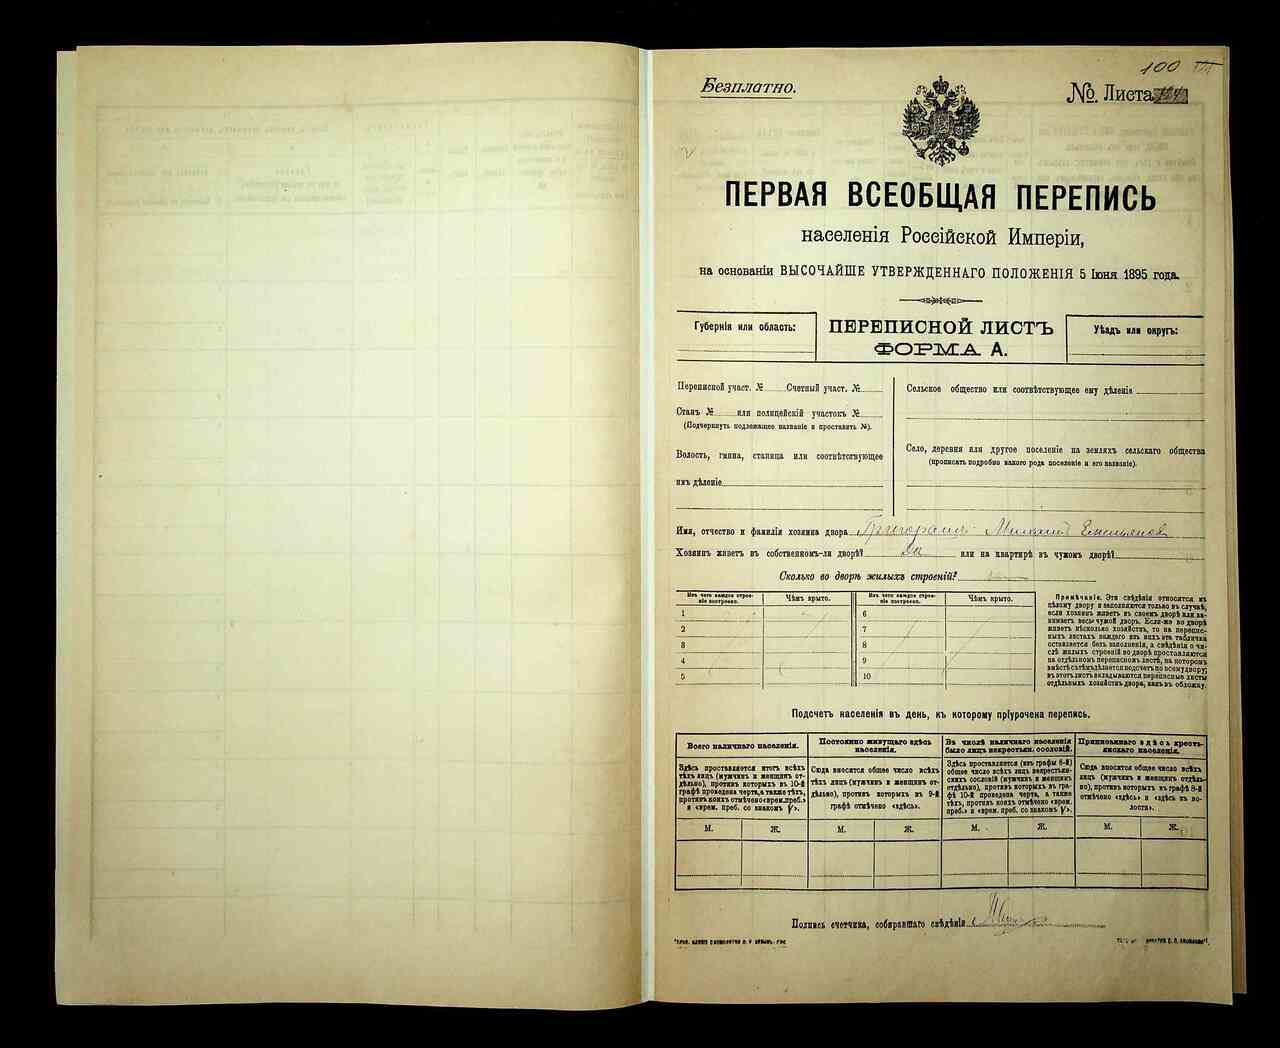 100
Безплатно.
№. Листа
ПЕРВАЯ ВСЕОБЩАЯ ПЕРЕПИСЬ
населенія Россійской Имперіи,
на основаніи ВЫСОЧАЙШЕ УТВЕРЖДЕННАГО ПОЛОЖЕНІЯ 5 Іюня 1895 года.
Губернія или область:
ПЕРЕПИСНОЙ ЛИСТЪ
ФОРМА А.
Уѣздъ или округъ:
Переписной участ. № Счетный участ. №
Станъ № или полицейскій участокъ №
(Подчеркнуть подлежащее названіе и проставить №).
Волость, гмина, станица или соотвѣтствующее
имъ дѣленіе
Сельское общество или соотвѣтствующее ему дѣленіе
Село, деревня или другое поселеніе на земляхъ сельскаго общества
(прописать подробно какого рода поселеніе и его названіе).
Имя, отчество и фамилія хозяина двора
Хозяинъ живетъ въ собственномъ-ли дворѣ? да или на квартирѣ въ чужомъ дворѣ?
Сколько во дворѣ жилыхъ строеній?
Изъ чего каждое строе-
ніе построено.
Чѣмъ крыто.
1
2
3
4
5
Изъ чего каждое строе-
ніе построено.
Чѣмъ крыто.
6
7
8
9
10
Примѣчаніе. Эти свѣдѣнія относятся къ
цѣлому двору и заполняются только въ случаѣ,
если хозяинъ живетъ въ своемъ дворѣ или за-
нимаетъ весь чужой дворъ. Если-же во дворѣ
живетъ нѣсколько хозяйствъ, то на перепис-
ныхъ листахъ каждаго изъ нихъ эта табличка
оставляется безъ заполненія, а свѣдѣнія о чи-
слѣ жилыхъ строеній во дворѣ проставляются
на отдѣльномъ переписномъ листѣ, на которомъ
вмѣстѣ съ тѣмъ дѣлается подсчетъ по всему двору;
въ этотъ листъ вкладываются переписные листы
отдѣльныхъ хозяйствъ двора, какъ въ обложку.
Подсчетъ населенія въ день, къ которому пріурочена перепись.
Всего наличнаго населенія.
Здѣсь проставляется итогъ всѣхъ
тѣхъ лицъ (мужчинъ и женщинъ от-
дѣльно), противъ которыхъ въ 10-й
графѣ проведена черта, а также тѣхъ,
противъ коихъ отмѣчено «врем. преб.»
и «врем. преб. со знакомъ V».
М. Ж.
Постоянно живущаго здѣсь
населенія.
Сюда вносится общее число всѣхъ
тѣхъ лицъ (мужчинъ и женщинъ от-
дѣльно), противъ которыхъ въ 9-й
графѣ отмѣчено «здѣсь».
М. Ж.
Въ числѣ наличнаго населенія
было лицъ некрестьян. сословій.
Здѣсь проставляется (изъ графы 8-й)
общее число всѣхъ лицъ некрестьян-
скихъ сословій (мужчинъ и женщинъ
отдѣльно), противъ которыхъ въ гра-
фѣ 10-й проведена черта, а также
тѣхъ, противъ коихъ отмѣчено «врем.
преб.» и «врем. преб. со знакомъ V».
М. Ж.
Приписаннаго здѣсь кресть-
янскаго населенія.
Сюда вносится общее число всѣхъ
лицъ (мужчинъ и женщинъ отдѣль-
но), противъ которыхъ въ графѣ 8-й
отмѣчено «здѣсь» и «здѣсь въ во-
лости».
М. Ж.
Подпись счетчика, собиравшаго свѣдѣнія